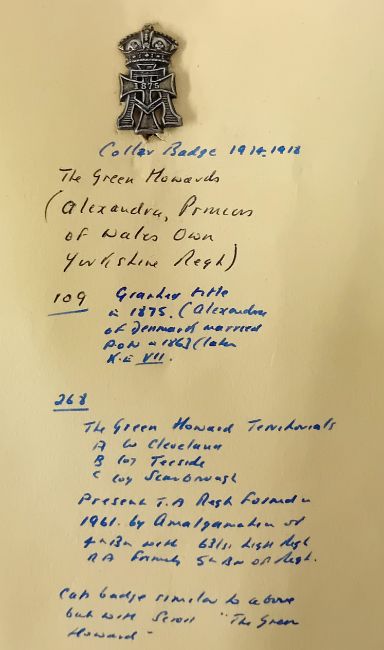 1875
Collar Badge 1914-1918
The Green Howards
(Alexandra, Princess
of Wales Own
Yorkshire Regt)
109 Granted title
in 1875. (Alexandra
of Denmark married
POW in 1863 (later
K.E VII.
268
The Green Howard Territorials
A Coy Cleveland
B Coy Teeside
C Coy Scarborough
Present T.A Regt formed in
1961. by Amalgamation of
4th Bn with Light Regt
RA formerly 5th Bn of Regt.
Cap badge similar to above
but with Scroll "The Green
Howard"